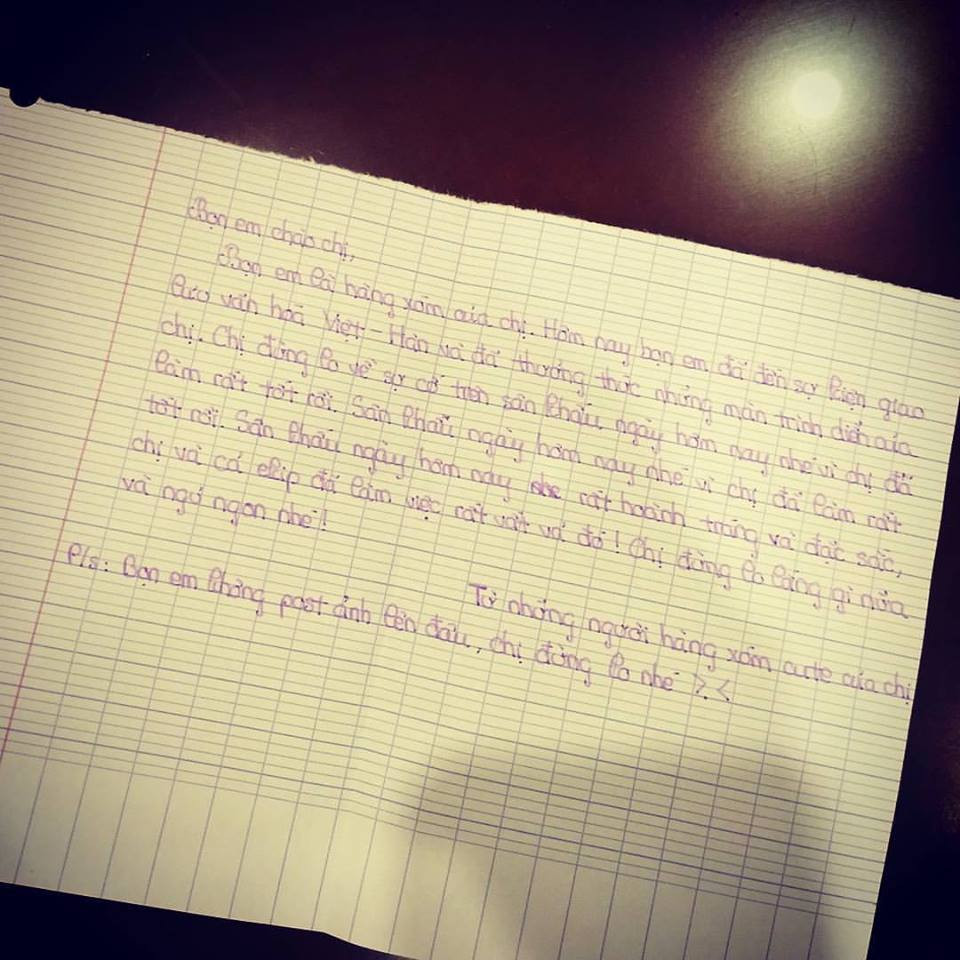 Bọn em chào chị,
Bọn em là hàng xóm của chị. Hôm nay bọn em đã đến sự kiện giao
lưu văn hoá Việt - Hàn và đã thưởng thức những màn trình diễn của
chị. Chị đừng lo về sự cố trên sân khấu ngày hôm nay nhé vì chị đã
làm rất tốt rồi. Sân khấu ngày hôm nay nhé vì chị đã làm rất
tốt rồi. Sân khấu ngày hôm nay rất hoành tráng và đặc sắc,
chị và cả ekip đã làm việc rất vất vả đó! Chị đừng lo lắng gì nữa
và ngủ ngon nhé!
Từ những người hàng xóm cute của chị
P/s: Bọn em không post ảnh lên đâu, chị đừng lo nhé >.<